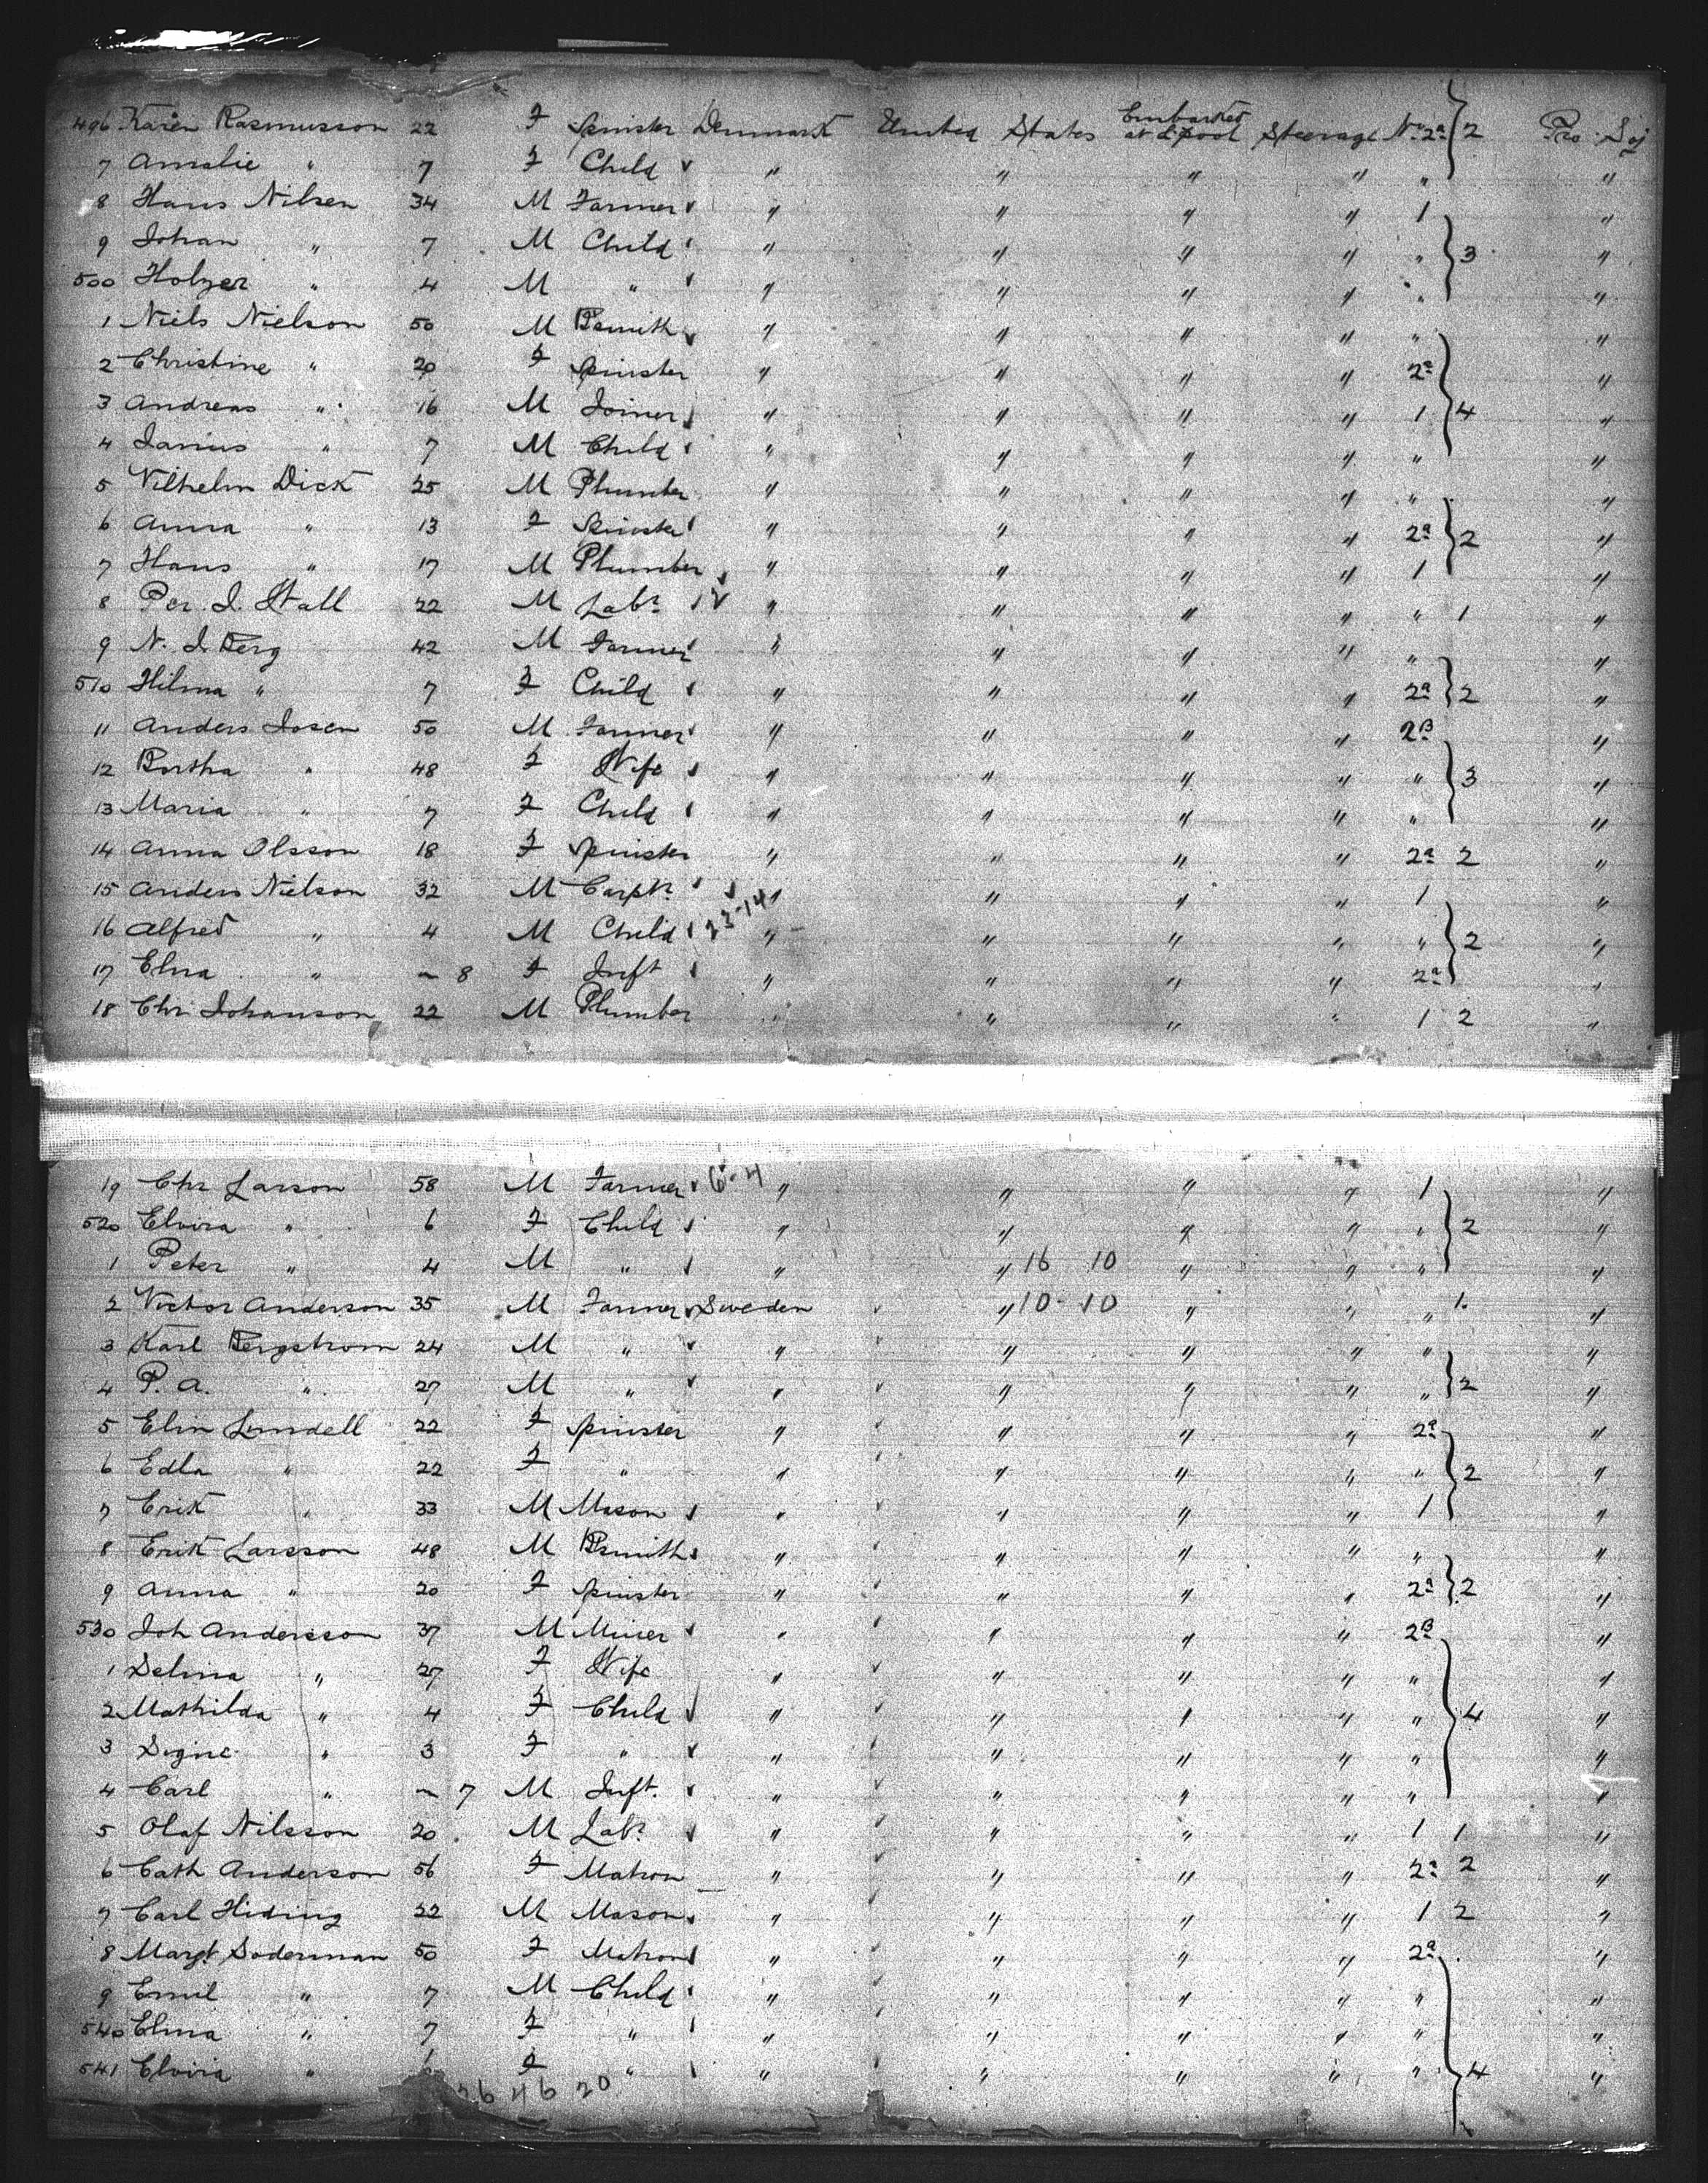 496 Karen Rasmusson 22 F Spinster Denmark United States Embarked at L'pool Steerage No 2a 2 Pro Soj
7 Amalie " 7 F Child " " " " " "
8 Hans Nilsen 34 M Farmer " " " " 1 "
9 Johan " 7 M Child " " " " " 3 "
500 Holger " 4 M " " " " " " "
1 Niels Nielson 50 M Bsmith " " " " " "
2 Christine " 20 F Spinster " " " " 2a "
3 Andreas " 16 M Joiner " " " " 1 4 "
4 Janius " 7 M Child " " " " " "
5 Vilhelm Dick 25 M Plumber " " " " " "
6 Anna " 13 F Spinster " " " " 2a 2 "
7 Hans " 17 M Plumber " " " " 1 "
8 Per. J. Wall 22 M Labr " " " " " 1 "
9 N. J. Berg 42 M Farmer " " " " " "
510 Hilma " 7 F Child " " " " 2a 2 "
11 Anders Josen 50 M Farmer " " " " 2B "
12 Bertha " 48 F Wife " " " " " 3 "
13 Maria " 7 F Child " " " " " "
14 Anna Olsson 18 F Spinster " " " " 2a 2 "
15 Anders Nielson 32 M Carptr " " " " 1 "
16 Alfred " 4 M Child 23-14 " " " " " 2 "
17 Elna " ~ 8 F Inft " " " " 2a "
18 Chr Johanson 22 M Plumber " " " " 1 2 "
19 Chr Larson 58 M Farmer 6-4 " " " " 1 "
520 Elvira " 6 F Child " " " " " 2 "
1 Peter " 4 M " " " 16 10 " " " "
2 Victor Anderson 35 M Farmer Sweden " 10-10 " " " 1 "
3 Karl Bergstrom 24 M " " " " " " "
4 P. A. " 27 M " " " " " " 2 "
5 Elin Lundell 22 F Spinster " " " " 2a "
6 Edla " 22 F " " " " " " 2 "
7 Erik " 33 M Mason " " " " 1 "
8 Erik Larsson 48 M Bsmith " " " " " "
9 Anna " 20 F Spinster " " " " 2a 2 "
530 Joh Andersson 37 M Miner " " " " 2B "
1 Selina " 27 F Wife " " " " " "
2 Mathilda " 4 F Child " " " " " 4 "
3 Signe " 3 F " " " " " " "
4 Carl " ~ 7 M Inft. " " " " " "
5 Olof Nilsson 20 M Labr " " " " 1 1 "
6 Cath Anderson 56 F Matron " " " " 2a 2 "
7 Carl Hiding 22 M Mason " " " " 1 2 "
8 Margt Soderman 50 F Matron " " " " 2a "
9 Emil " 7 M Child " " " " " "
540 Elma " 7 F " " " " " " "
541 Elvira " F " " " " " " 4 "
26 46 20